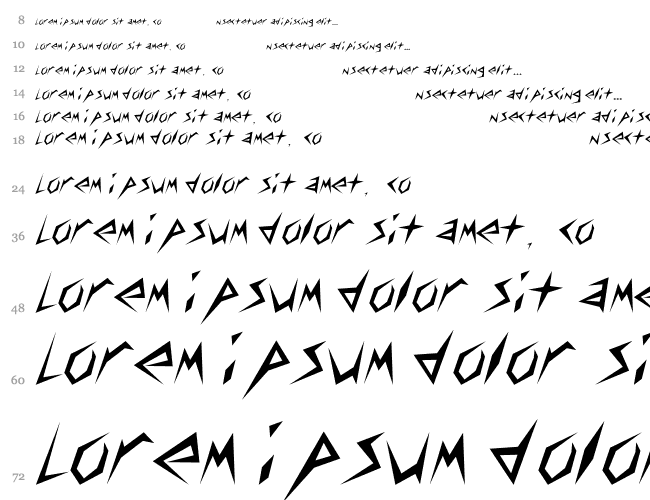 8 Lorem ipsum dolor sit amet, co nsectetuer adipiscing elit...
10 Lorem ipsum dolor sit amet, co nsectetuer adipiscing elit...
12 Lorem ipsum dolor sit amet, co nsectetuer adipiscing elit...
14 Lorem ipsum dolor sit amet, co nsectetuer adipiscing elit...
16 Lorem ipsum dolor sit amet, co nsectetuer adipisc
18 Lorem ipsum dolor sit amet, co nsecte
24 Lorem ipsum dolor sit amet, co
36 Lorem ipsum dolor sit amet, co
48 Lorem ipsum dolor sit ame
60 Lorem ipsum dolor si
72 Lorem ipsum dolo